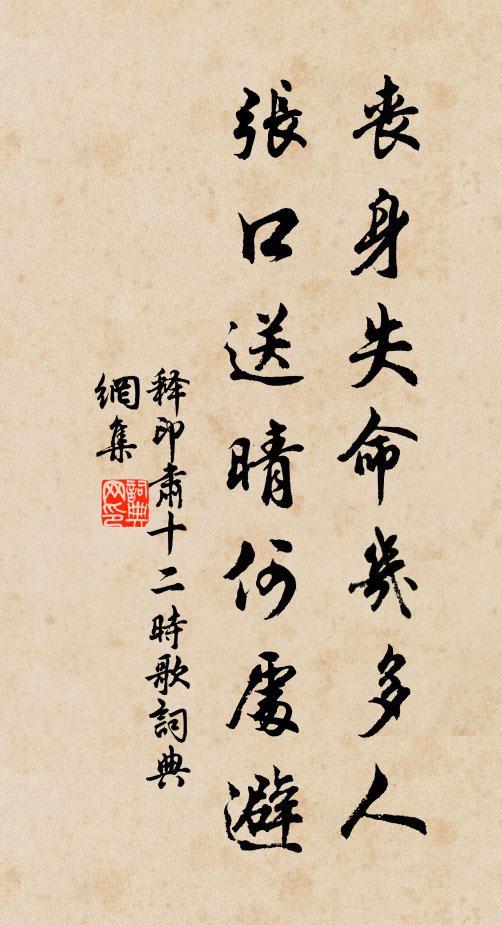 喪身失命幾多人
張口送晴何處避
释印肅十二時歌詞典
網集
詞典
网印